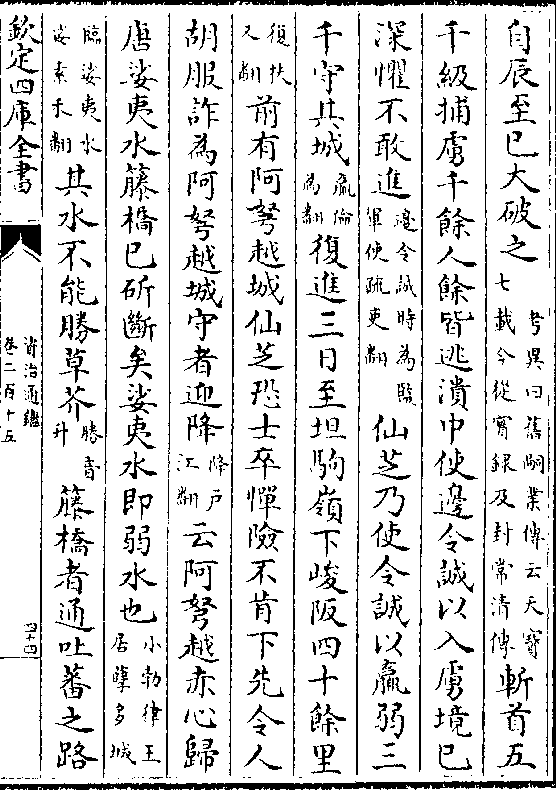 自辰至巳大破之考異曰舊嗣業傳云天寳七載今從實録及封常清傳斬首五
千級捕虜千餘人餘皆逃潰中使邊令誠以入虜境已
深懼不敢進邊令誠時為監軍使疏吏翻仙芝乃使令誠以羸弱三
千守其城羸倫為翻復進三日至坦駒嶺下峻阪四十餘里
復扶又翻前有阿弩越城仙芝恐士卒憚險不肯下先令人
胡服詐為阿弩越城守者迎降降戸江翻云阿弩越赤心歸
唐娑夷水藤橋已斫斷矣娑夷水即弱水也小勃律王居孽多城
臨娑夷水娑素禾翻其水不能勝草芥勝音升藤橋者通吐蕃之路
欽定四庫全書
資治通鑑
卷二百十五
四十四